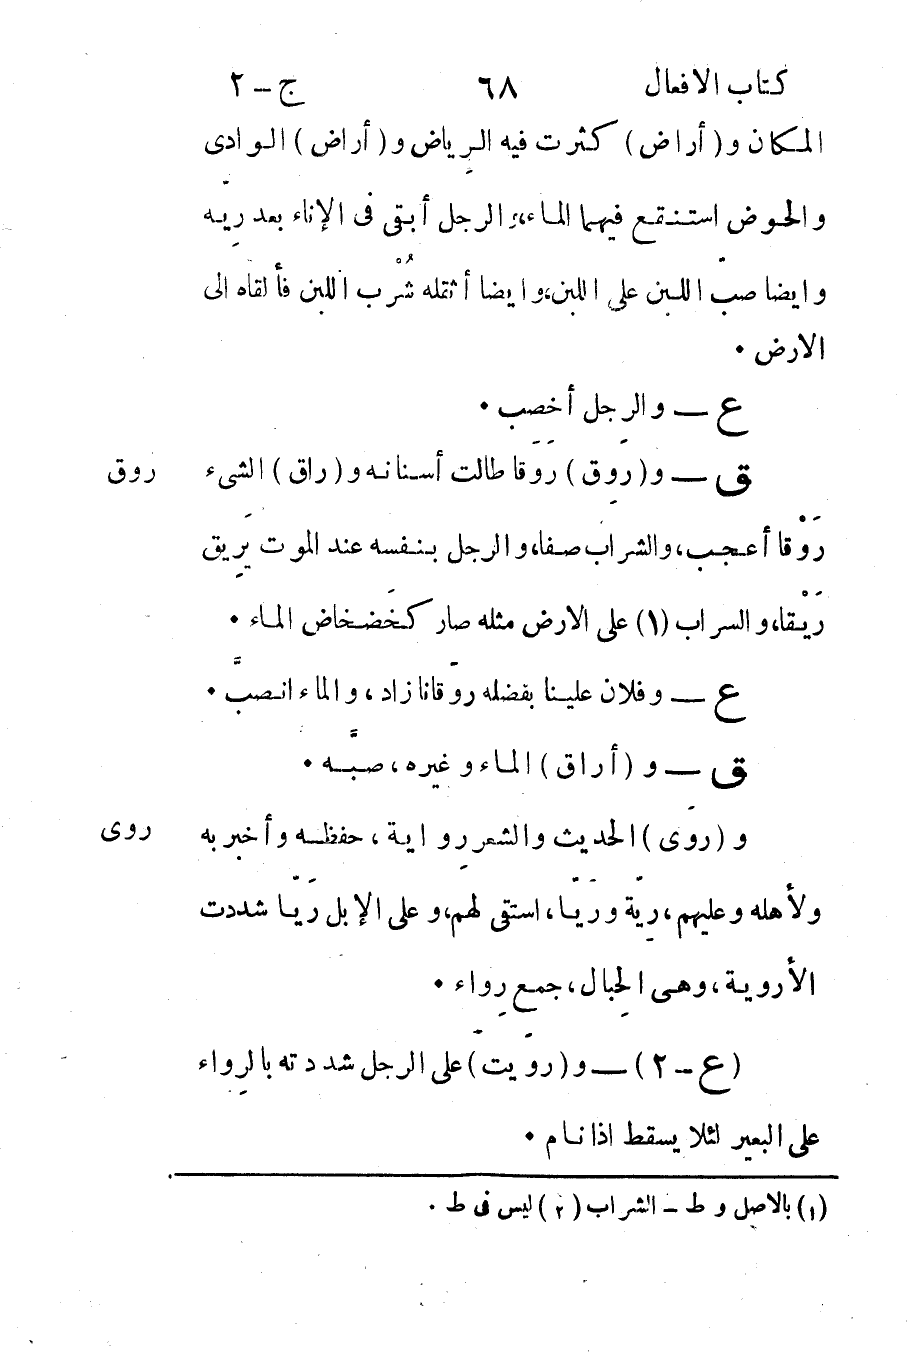 كتاب الافعال ٦٨ ج – ٢
المكان و (أراض) كثرت فيه الرياض و (أراض) الوادى
والحوض استنقع فيهما الماء، والرجل أبقى فى الإناء بعد ريّه
وايضا صب اللبن على اللبن، وايضا أثقله شُرْب اللبن فألقاه الى
الارض •
ع — والرجل أخصب •
ق — و (رَوِق) رَوَقا طالت أسنانه و (راق) الشىء
روق
رَوْقا أعجب، والشراب صفا، والرجل بنفسه عند الموت يَرِيق
رَيْقا، والسراب (١) على الارض مثله صار كخَضخاض الماء •
ع — وفلان علينا بفضله روقانا زاد، والماء انصبّ •
ق — و (أراق) الماء وغيره، صبّه •
و (روَى) الحديث والشعر رِواية، حفظه وأخبر به
روى
ولأهله وعليهم، رِيّة ورَيّا، استقى لهم، وعلى الإبل رَيّا شددت
الأروية، وهى الحبال، جمع رِواء •
(ع – ٢) — و (رَويت) على الرجل شددته بالرِواء
على البعير لئلا يسقط اذا نام •
(١) بالاصل و ط – الشراب (٢) ليس فى ط •